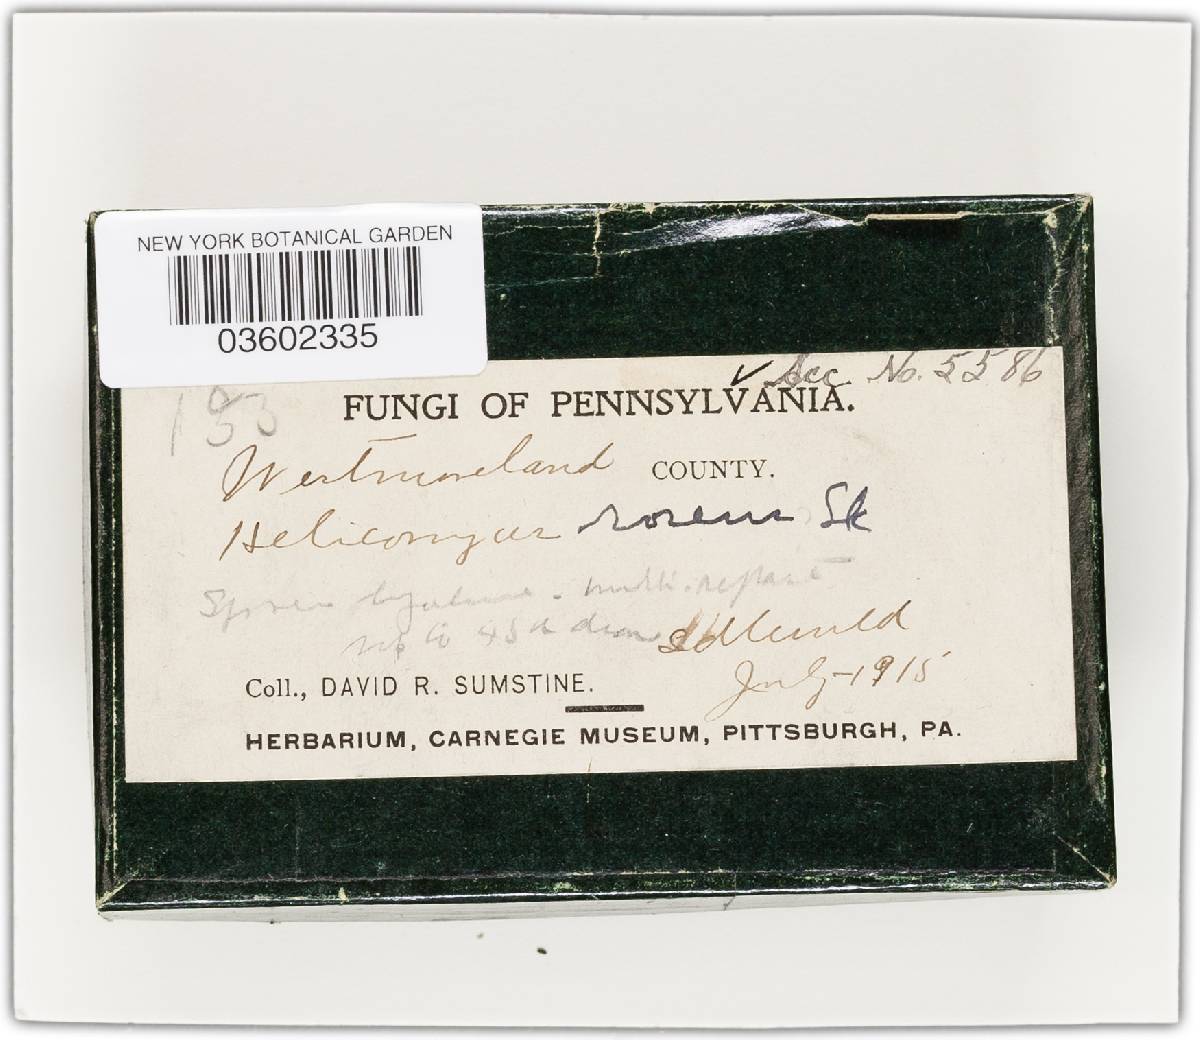 NEW YORK BOTANICAL GARDEN
03602335
✓ Acc No. 5586
FUNGI OF PENNSYLVANIA.
Westmoreland COUNTY.
Helicomyces roseus Sk
Spores hyaline - multi-septate
up to 45 u diam
Idlewild
July-1915
Coll., DAVID R. SUMSTINE.
HERBARIUM, CARNEGIE MUSEUM, PITTSBURGH, PA.